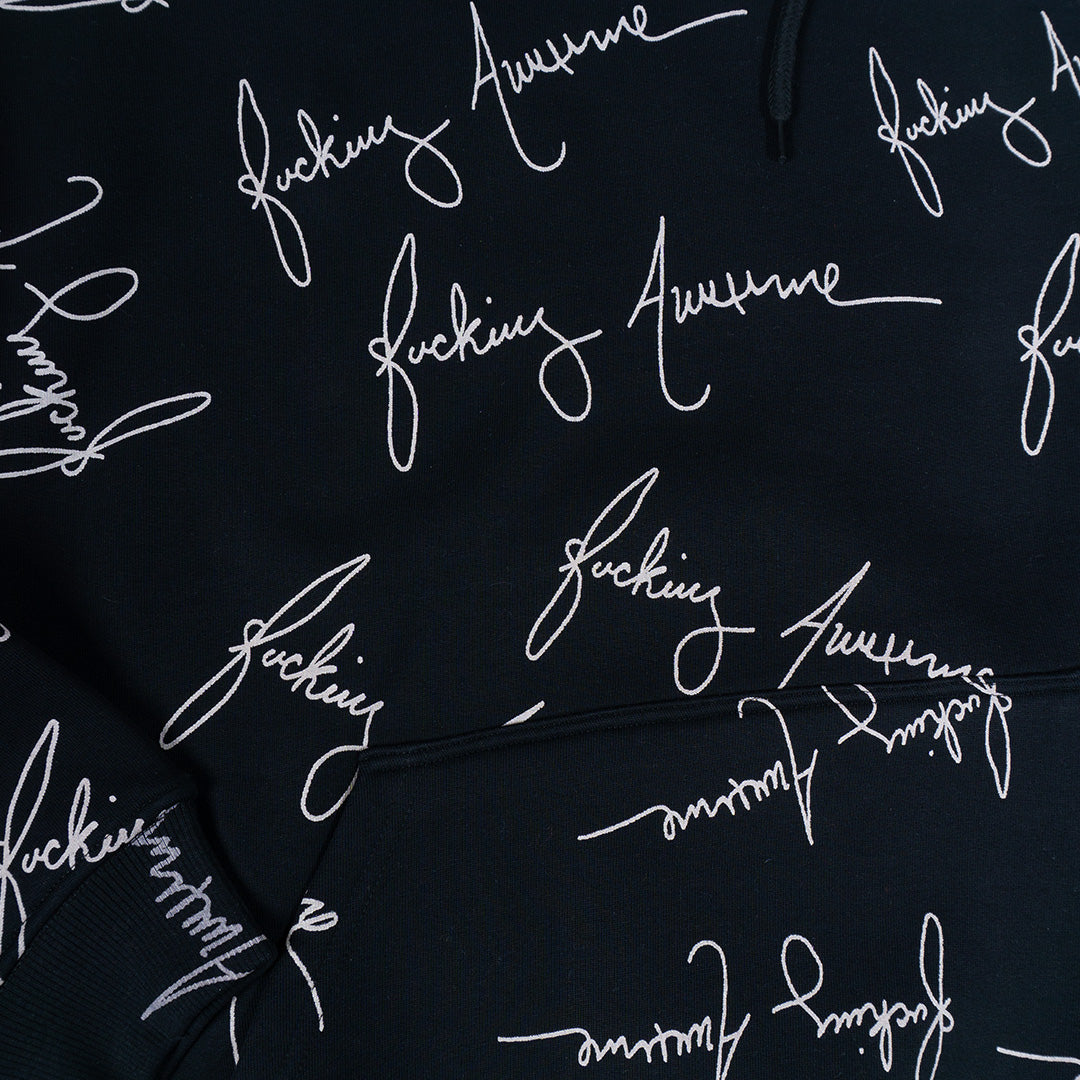 fucking Awesome
fucking
fucking Awesome
fucking
fucking Awesome
fucking
fucking
Awesome
fucking
Awesome
fucking
Awesome